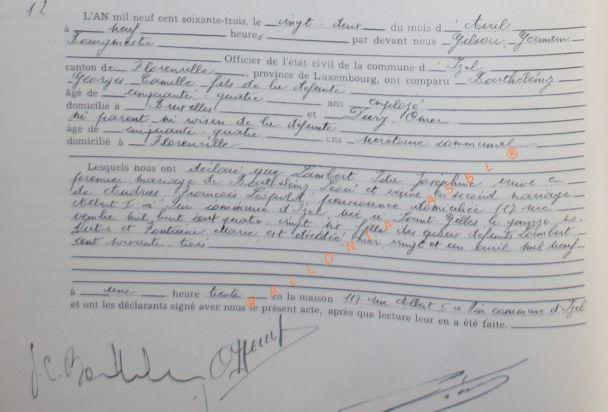 12
L'AN mil neuf cent soixante-trois, le vingt-deux du mois d'Avril
à neuf heures, par devant nous Gilson Germain
Bourgmestre Officier de l'état civil de la commune d'Izel
canton de Florenville, province de Luxembourg, ont comparu Barthélemy
Georges Camille fils de la défunte
âgé de cinquante quatre ans employé
domicilié à Bruxelles et Omer
ni parent ni voisin de la défunte
âgé de cinquante-quatre ans secrétaire communal
domicilié à Florenville
Lesquels nous ont déclaré que Lambert Josephine veuve en
premier mariage de Barthélemy et en second mariage
de François Léopold, pensionnée domiciliée 117 rue
Albert I à commune d'Izel, née à Saint Gilles le quinze no-
vembre mil huit cent quatre vingt six fille des défunts Lambert
Victor et Fontaine Marie est décédée hier vingt et un avril mil neuf
cent soixante trois
à une heure trente en la maison 117 rue Albert I à commune d'Izel
et ont les déclarants signé avec nous le présent acte, après que lecture leur en a été faite.
WALLONIA ASBL ®